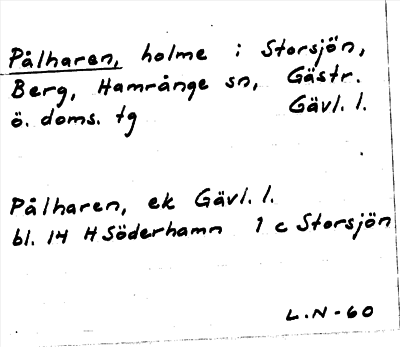 Pålharen, holme i Storsjön,
Berg, Hamrånge sn, Gästr.
ö. doms. tg Gävl. l.
Pålharen, ek Gävl. l.
bl. 14 H Söderhamn 1 c Storsjön
L.N-60